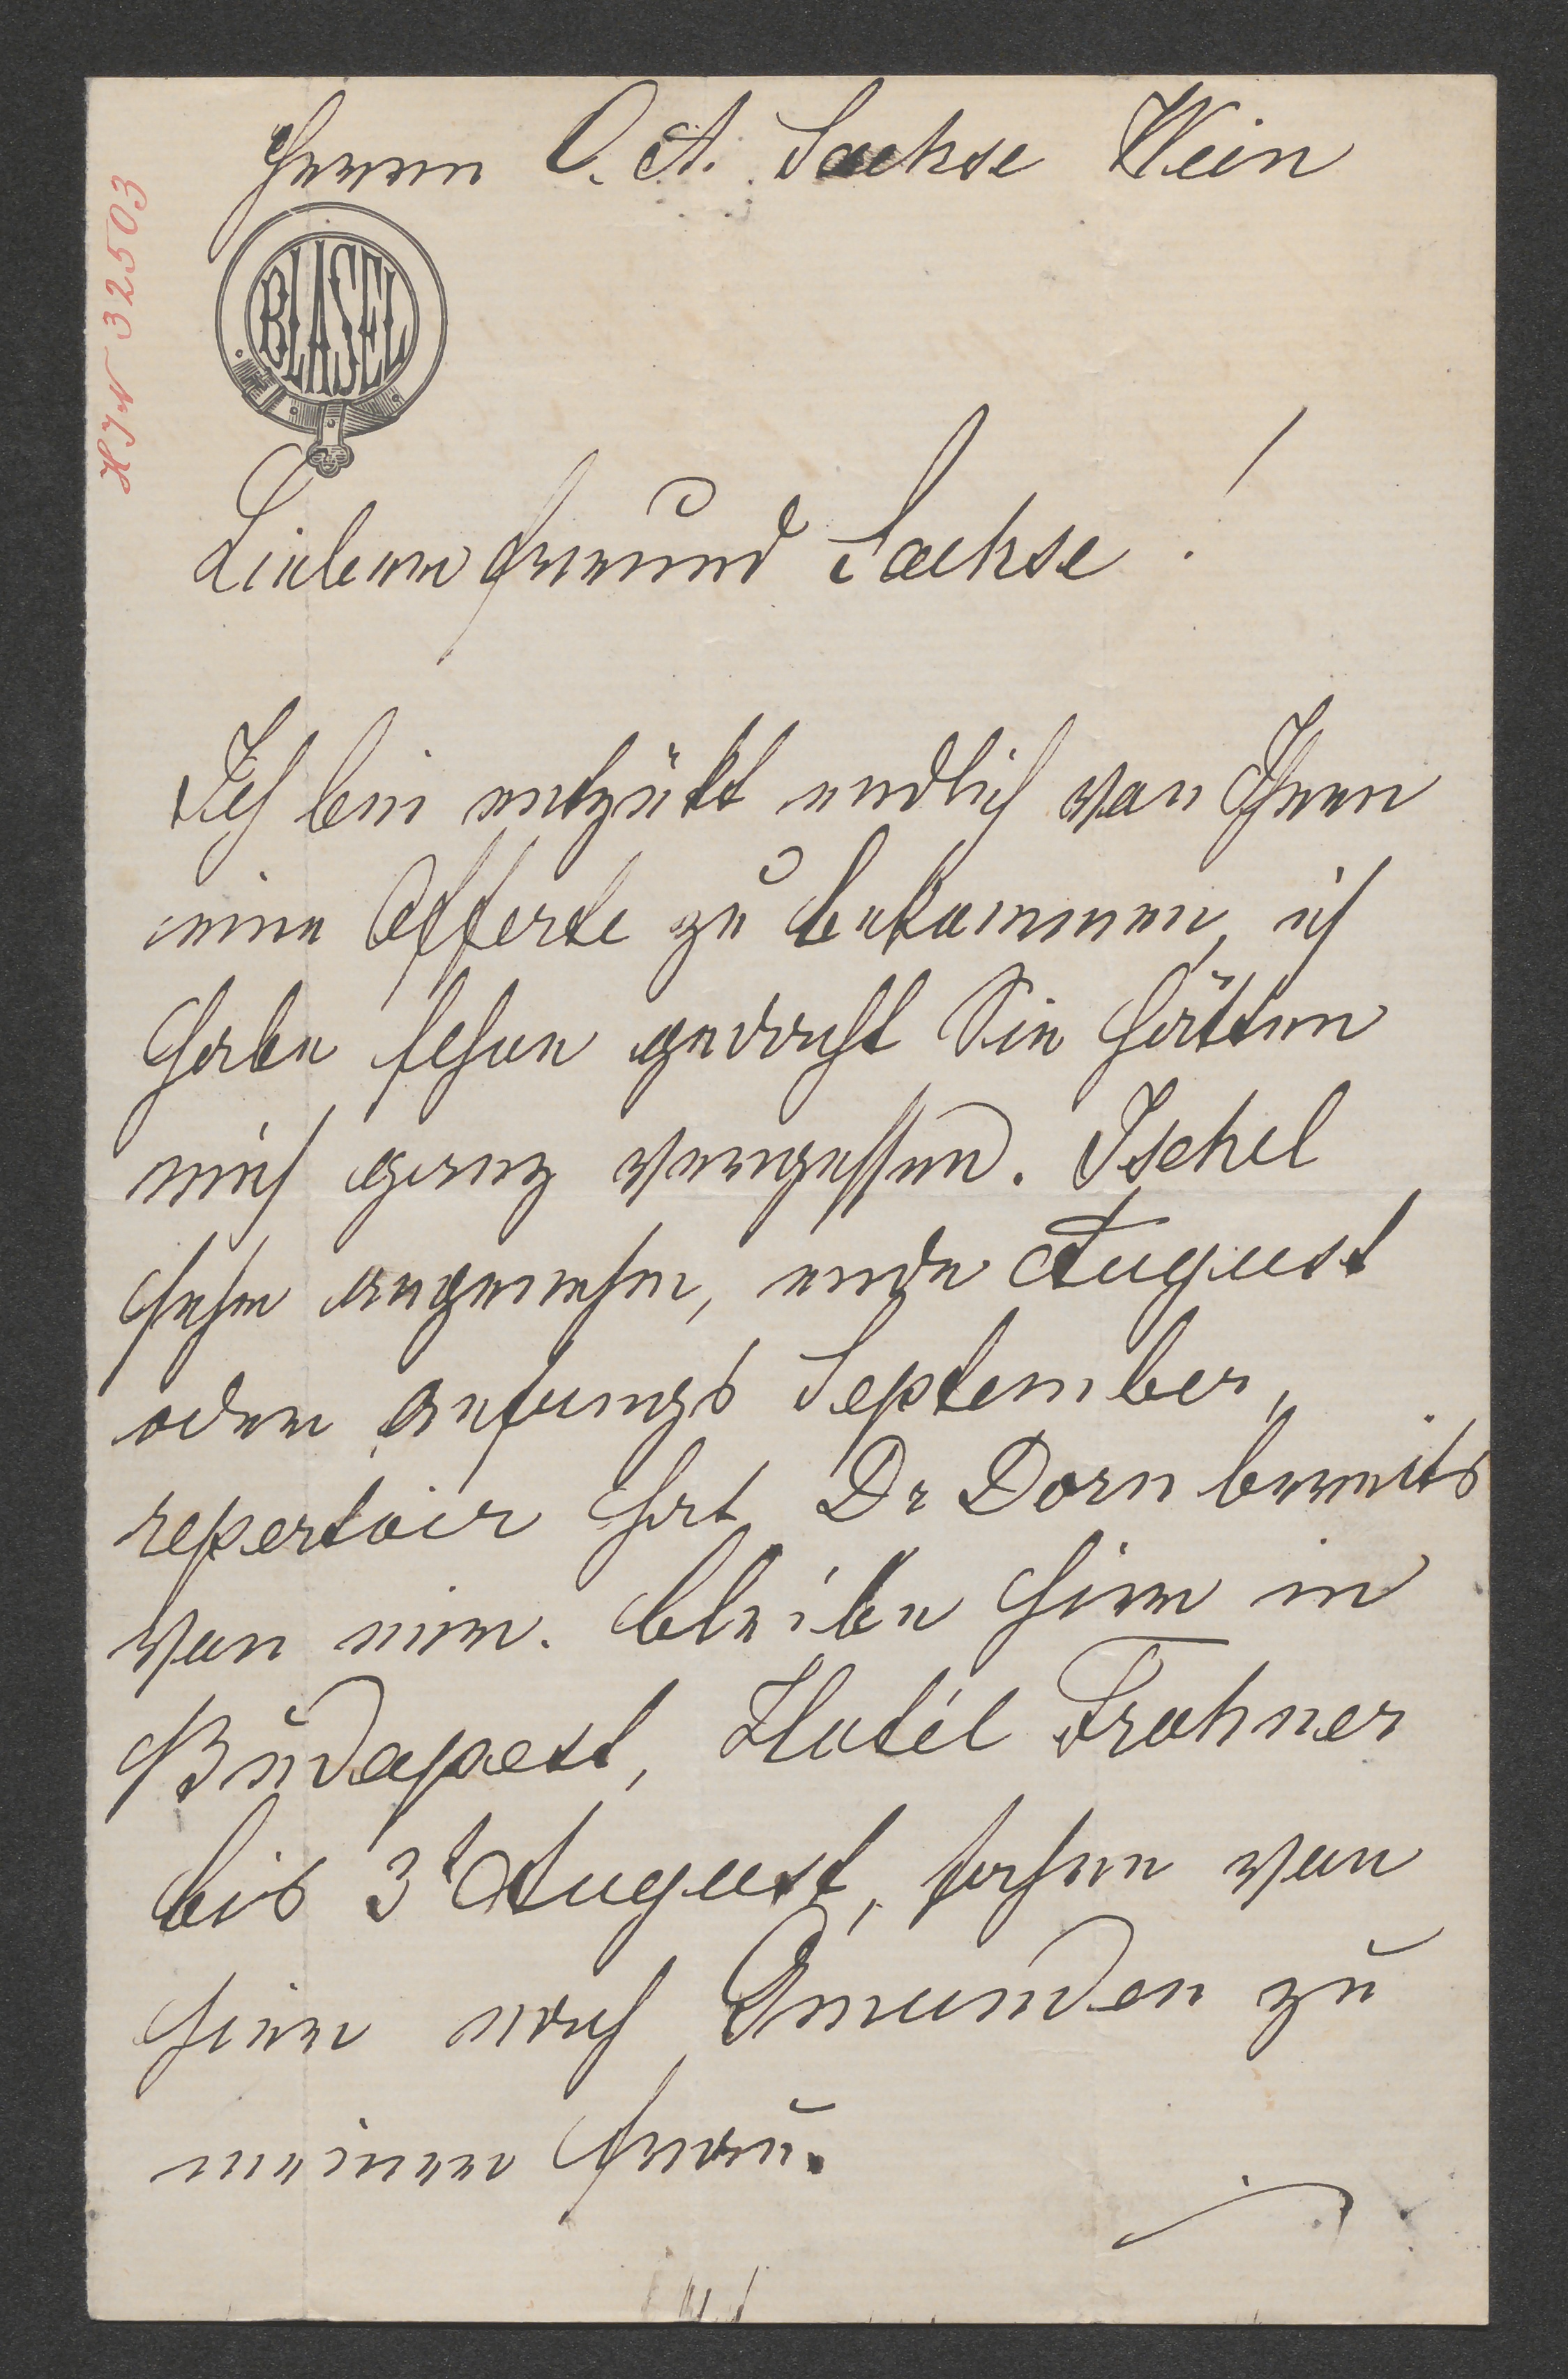 Herrn C. A. Sachse Wein
HIN 32503
BLASEL
Lieber Freund Sachse!
Ich bin entzükt endlich von Ihnen
eine Offerte zu bekommen, ich
habe schon gedacht Sie hätten
mich ganz vergessen. Ischel
sehr angenehm, ende August
oder anfangs September,
repertoir hat Dr Dorn bereits
von mir. bleibe hier in
Budapest, Hotél Frohner
bis 3t August, fahre von
hier nach Gmunden zu
meiner Frau.